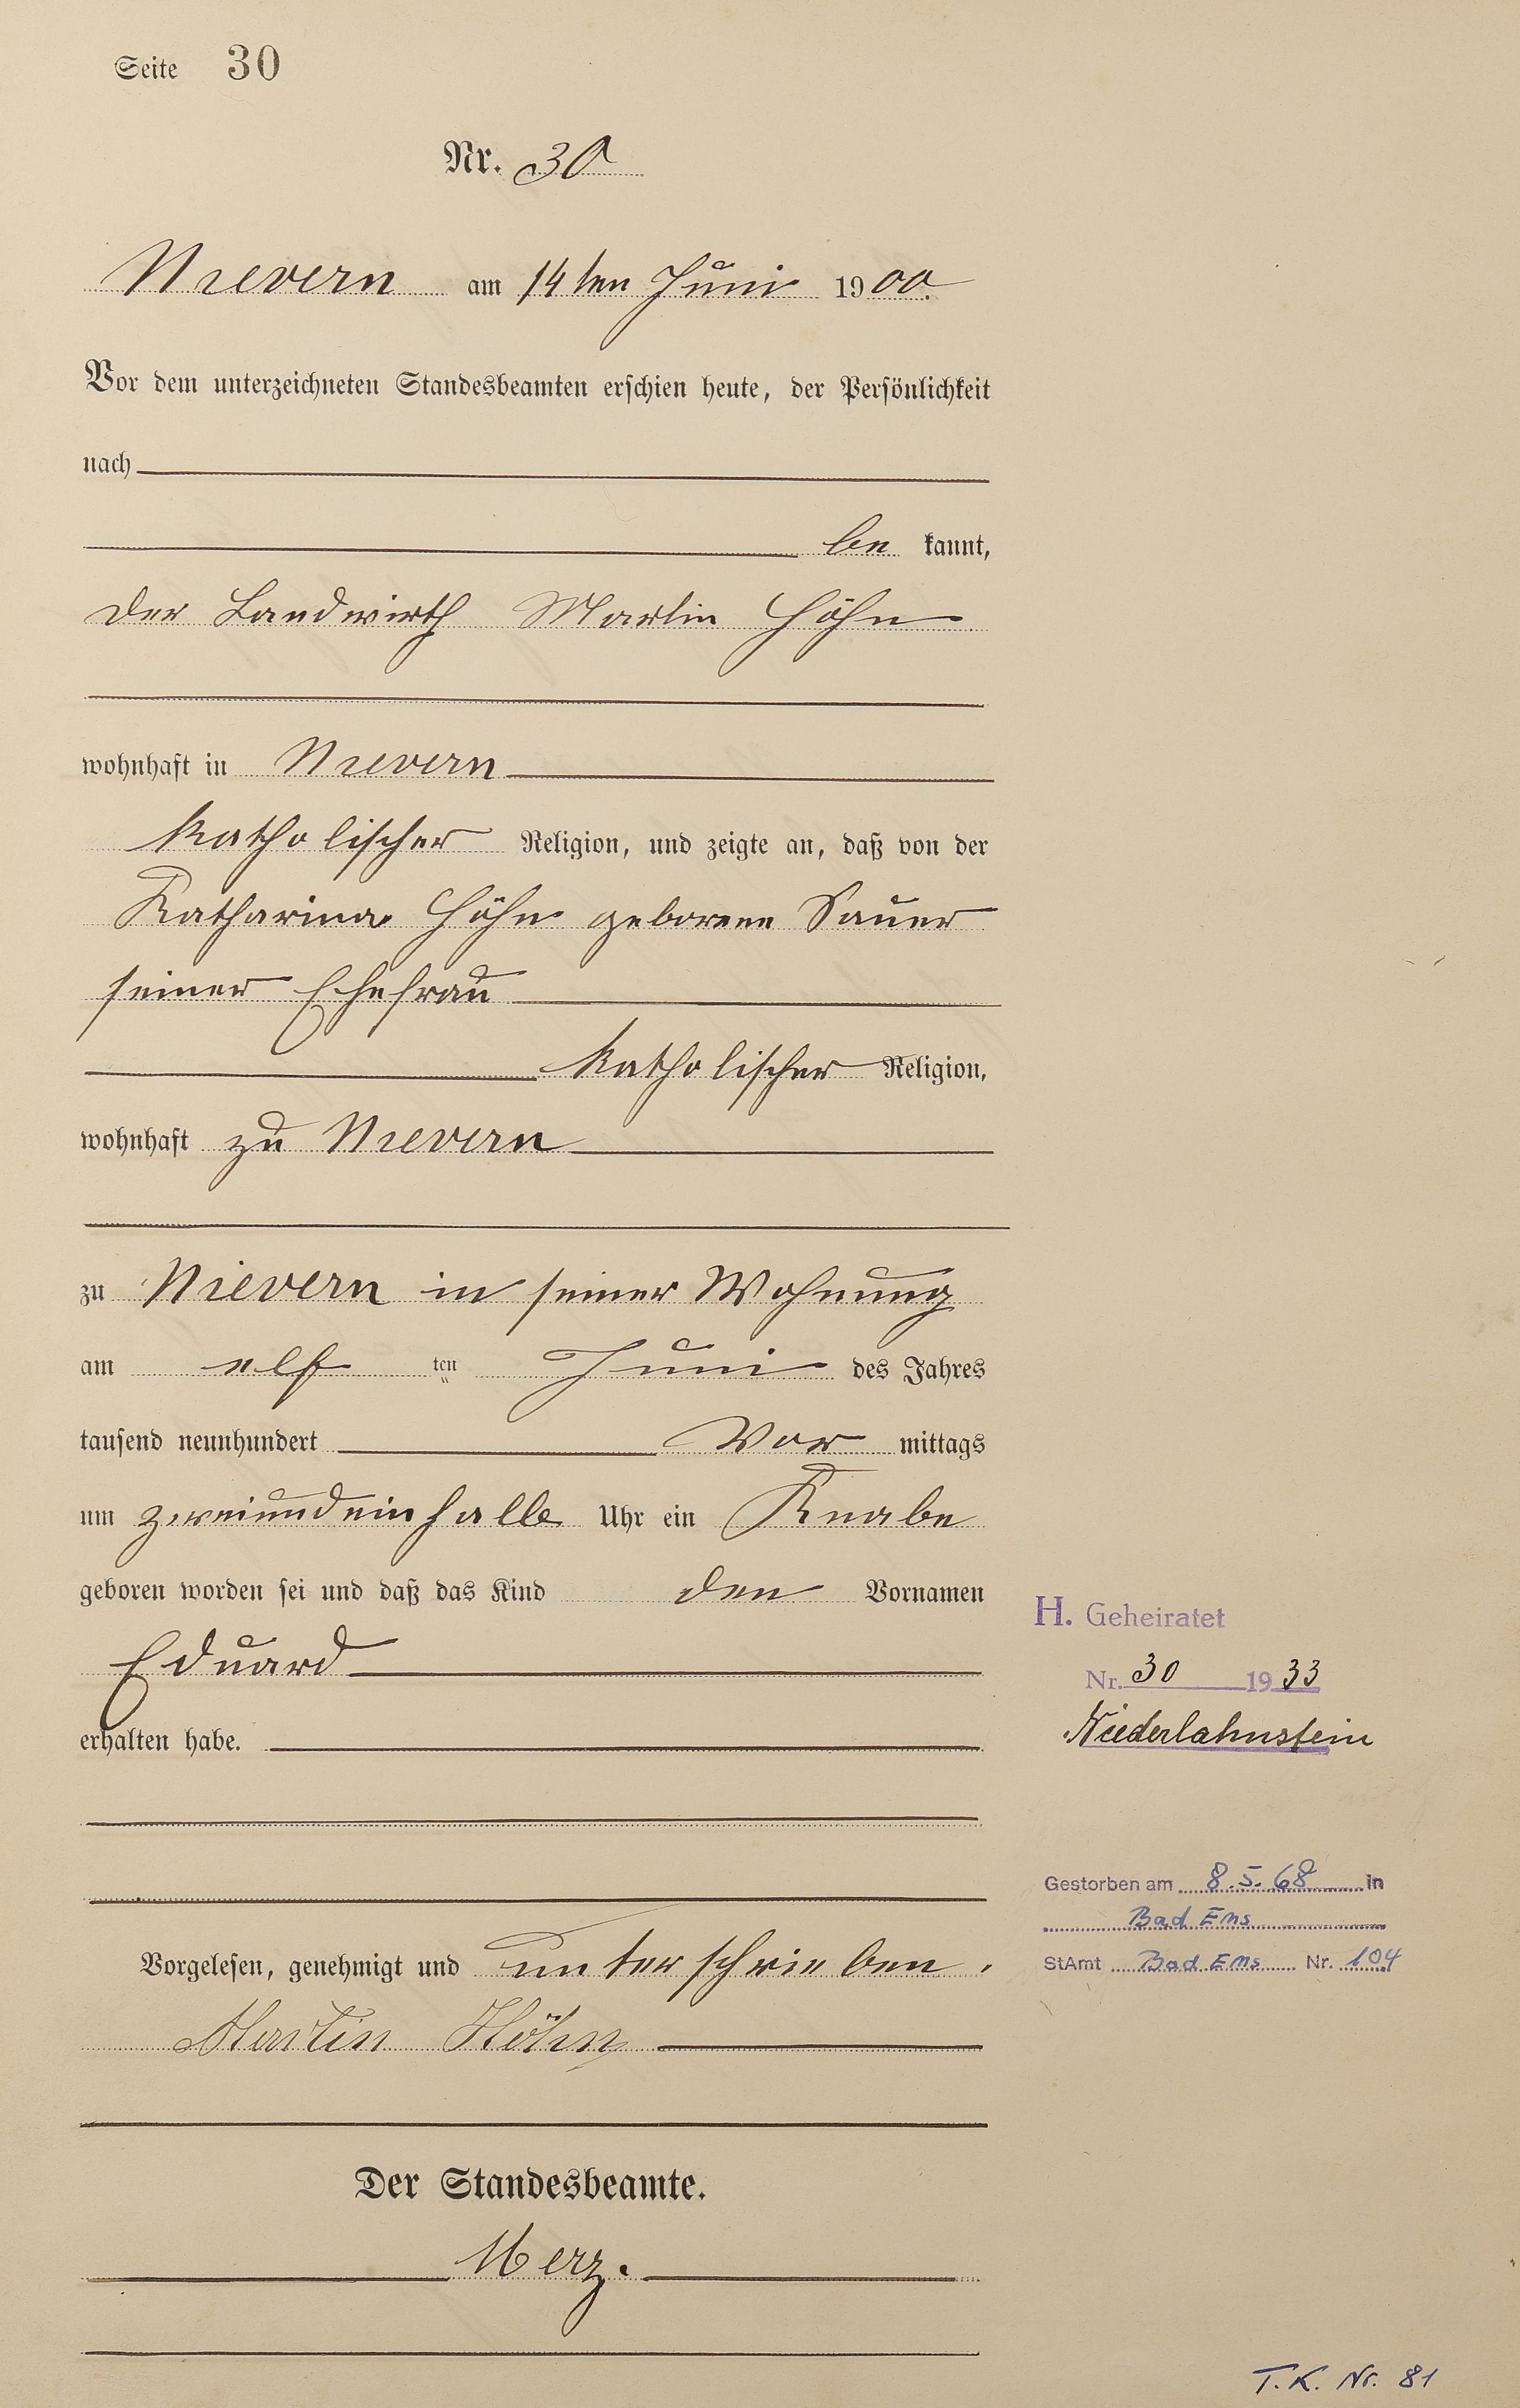 Seite 30
Nr. 30
Nievern am 14ten Juni 1900.
Vor dem unterzeichneten Standesbeamten erschien heute, der Persönlichkeit
nach
be kannt,
der Landwirth Martin Höhn
wohnhaft in Nievern
katholischer Religion, und zeigte an, daß von der
Katharina Höhn geborene Sauer
seiner Ehefrau
katholischer Religion,
wohnhaft zu Nievern
zu Nievern in seiner Wohnung
am elf ten Juni des Jahres
tausend neunhundert Vor mittags
um zweiundeinhalb Uhr ein Knabe
geboren worden sei und daß das Kind den Vornamen
Eduard
erhalten habe.
H. Geheiratet
Nr. 30 1933
Niederlahnstein
Gestorben am 8.5.68 in
Bad Ems
StAmt Bad Ems Nr. 104
Vorgelesen, genehmigt und unterschrieben.
Martin Höhn
Der Standesbeamte.
Merz.
T.K. Nr. 81